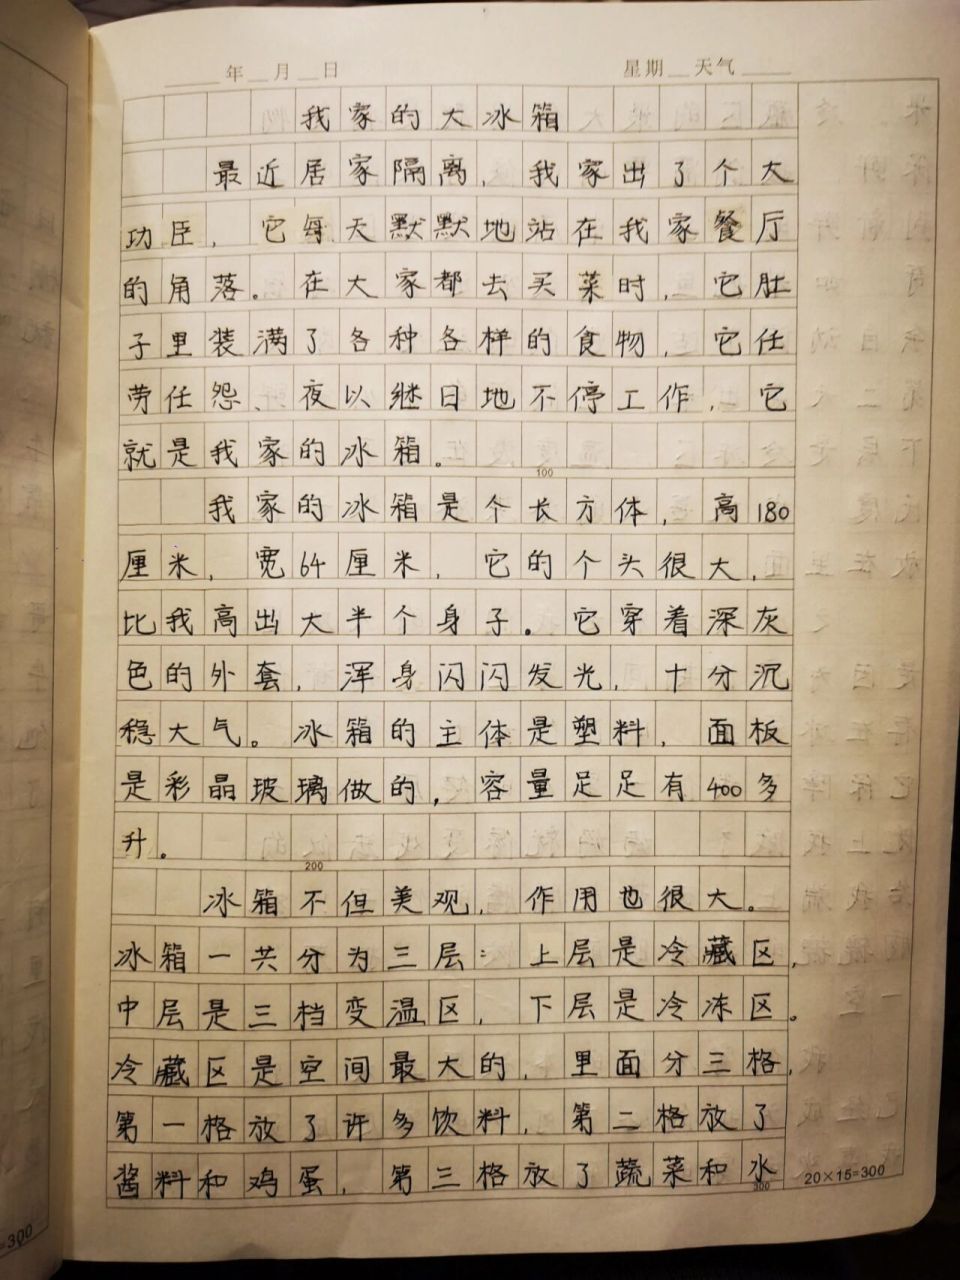 年 月 日 星期 天气
我家的大冰箱
最近居家隔离，我家出了个大
功臣，它每天默默地站在我家餐厅
的角落。在大家都去买菜时，它肚
子里装满了各种各样的食物，它任
劳任怨、夜以继日地不停工作，它
就是我家的冰箱。
100
我家的冰箱是个长方体，高180
厘米，宽64厘米，它的个头很大，
比我高出大半个身子。它穿着深灰
色的外套，浑身闪闪发光，十分沉
稳大气。冰箱的主体是塑料，面板
是彩晶玻璃做的，容量足足有400多
升。
200
冰箱不但美观，作用也很大。
冰箱一共分为三层：上层是冷藏区，
中层是三档变温区，下层是冷冻区。
冷藏区是空间最大的，里面分三格，
第一格放了许多饮料，第二格放了
酱料和鸡蛋，第三格放了蔬菜和水
300
20×15=300
=300